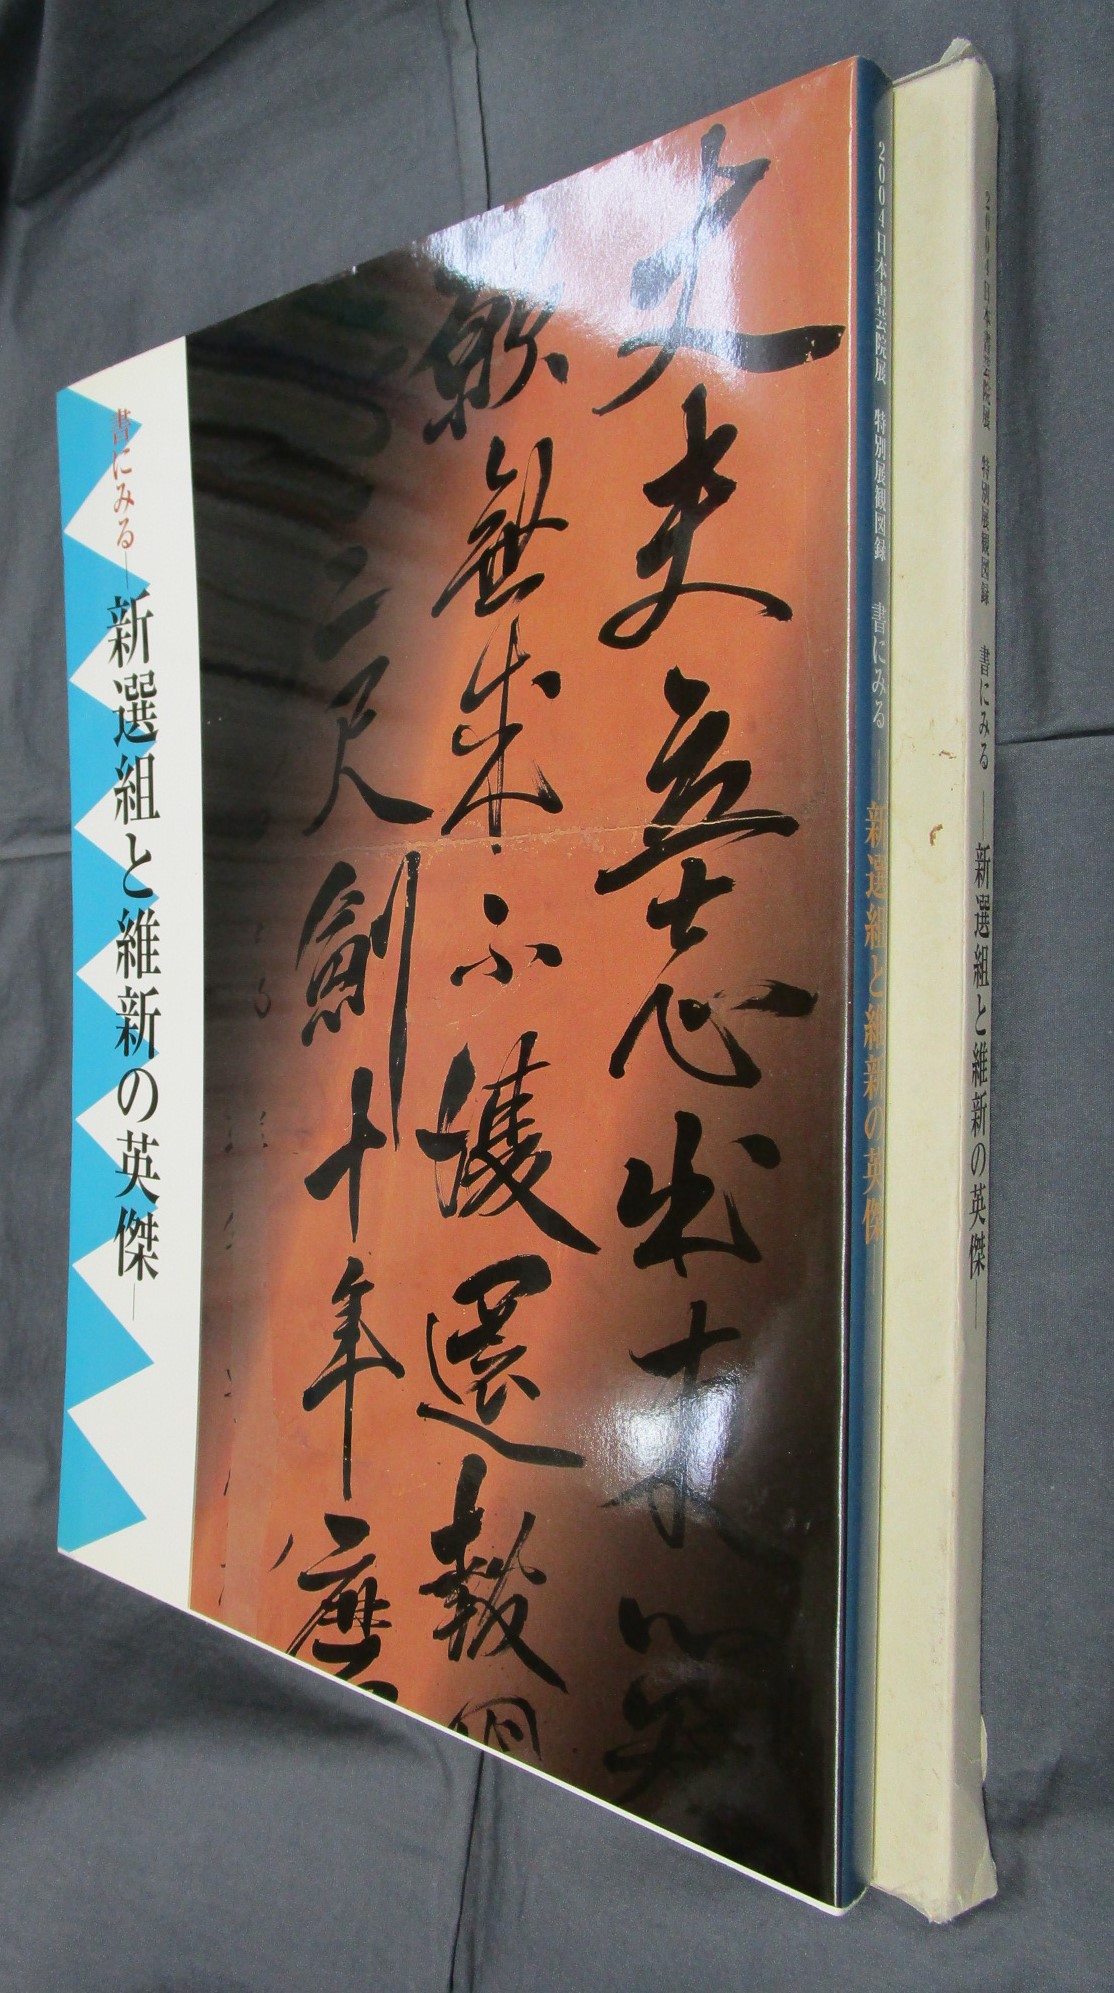 書にみる―新選組と維新の英傑―
丈夫立志出東関
願無成不復還報国
三尺剣十年磨
2004日本書芸院展 特別展観図録 書にみる―新選組と維新の英傑―
2004日本書芸院展 特別展観図録 書にみる―新選組と維新の英傑―